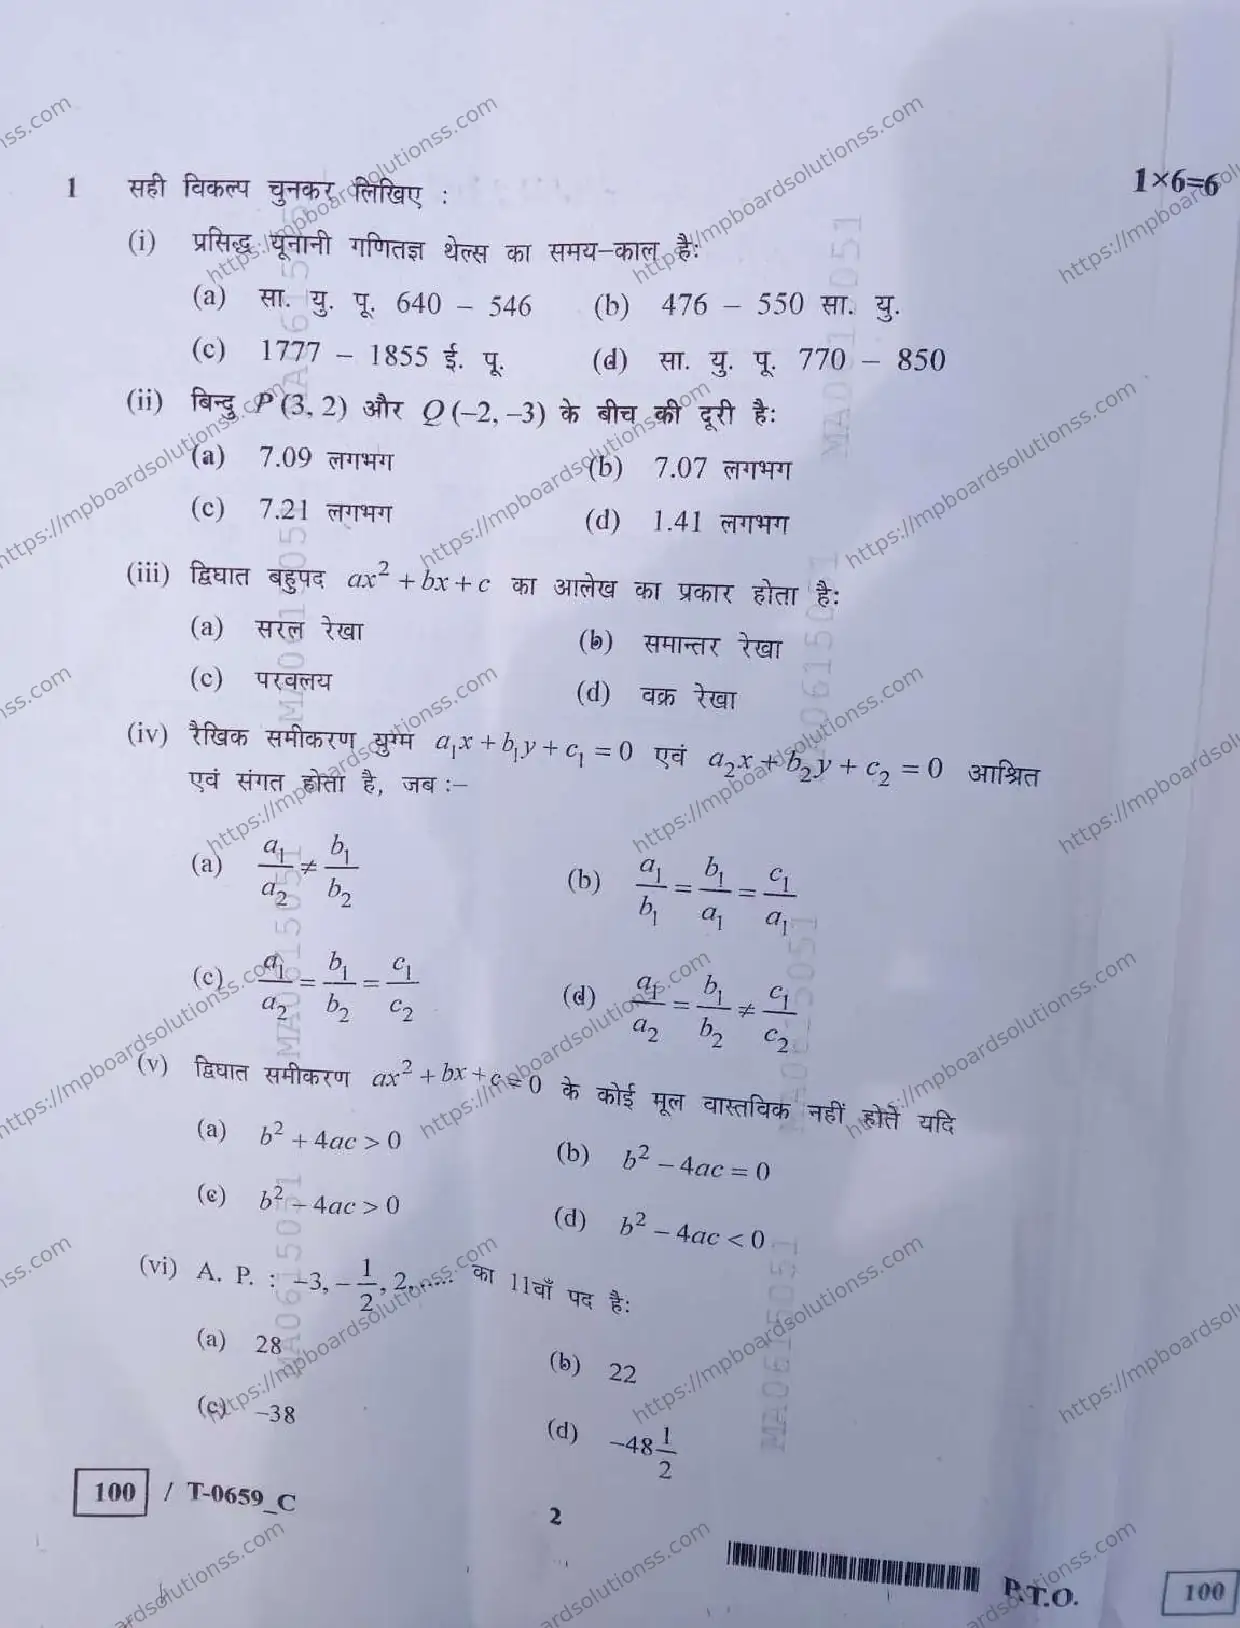 1 सही विकल्प चुनकर लिखिए : 1×6=6
(i) प्रसिद्ध यूनानी गणितज्ञ थेल्स का समय–काल है:
(a) सा. यु. पू. 640 – 546 (b) 476 – 550 सा. यु.
(c) 1777 – 1855 ई. पू. (d) सा. यु. पू. 770 – 850
(ii) बिन्दु P(3, 2) और Q(–2, –3) के बीच की दूरी है:
(a) 7.09 लगभग (b) 7.07 लगभग
(c) 7.21 लगभग (d) 1.41 लगभग
(iii) द्विघात बहुपद ax² + bx + c का आलेख का प्रकार होता है:
(a) सरल रेखा (b) समान्तर रेखा
(c) परवलय (d) वक्र रेखा
(iv) रैखिक समीकरण युग्म a₁x + b₁y + c₁ = 0 एवं a₂x + b₂y + c₂ = 0 आश्रित
एवं संगत होता है, जब :–
(a) a₁/a₂ ≠ b₁/b₂ (b) a₁/b₁ = b₁/a₁ = c₁/a₁
(c) a₁/a₂ = b₁/b₂ = c₁/c₂ (d) a₁/a₂ = b₁/b₂ ≠ c₁/c₂
(v) द्विघात समीकरण ax² + bx + c = 0 के कोई मूल वास्तविक नहीं होते यदि
(a) b² + 4ac > 0 (b) b² – 4ac = 0
(c) b² – 4ac > 0 (d) b² – 4ac < 0
(vi) A. P. : –3, –1/2, 2,..... का 11वाँ पद है:
(a) 28 (b) 22
(c) –38 (d) –48 1/2
100 / T-0659_C
2
P.T.O. 100
https://mpboardsolutionss.com
MA0615051